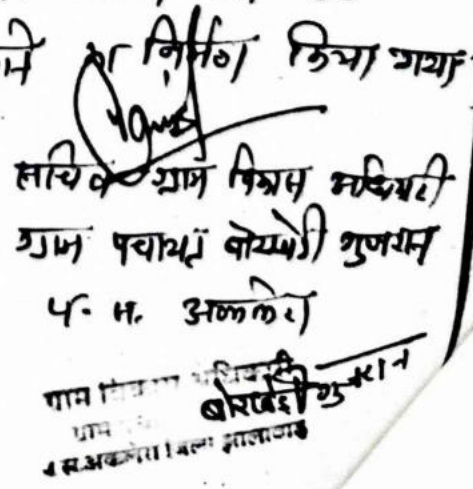 का निर्णय किया गया
सचिव ग्राम विकास अधिकारी
ग्राम पंचायत बोरखेडी गुजरान
पं. स. अकलेरा
ग्राम विकास अधिकारी
ग्राम बोरखेडी गुजरान
पं.स.अकलेरा जिला झालावाड